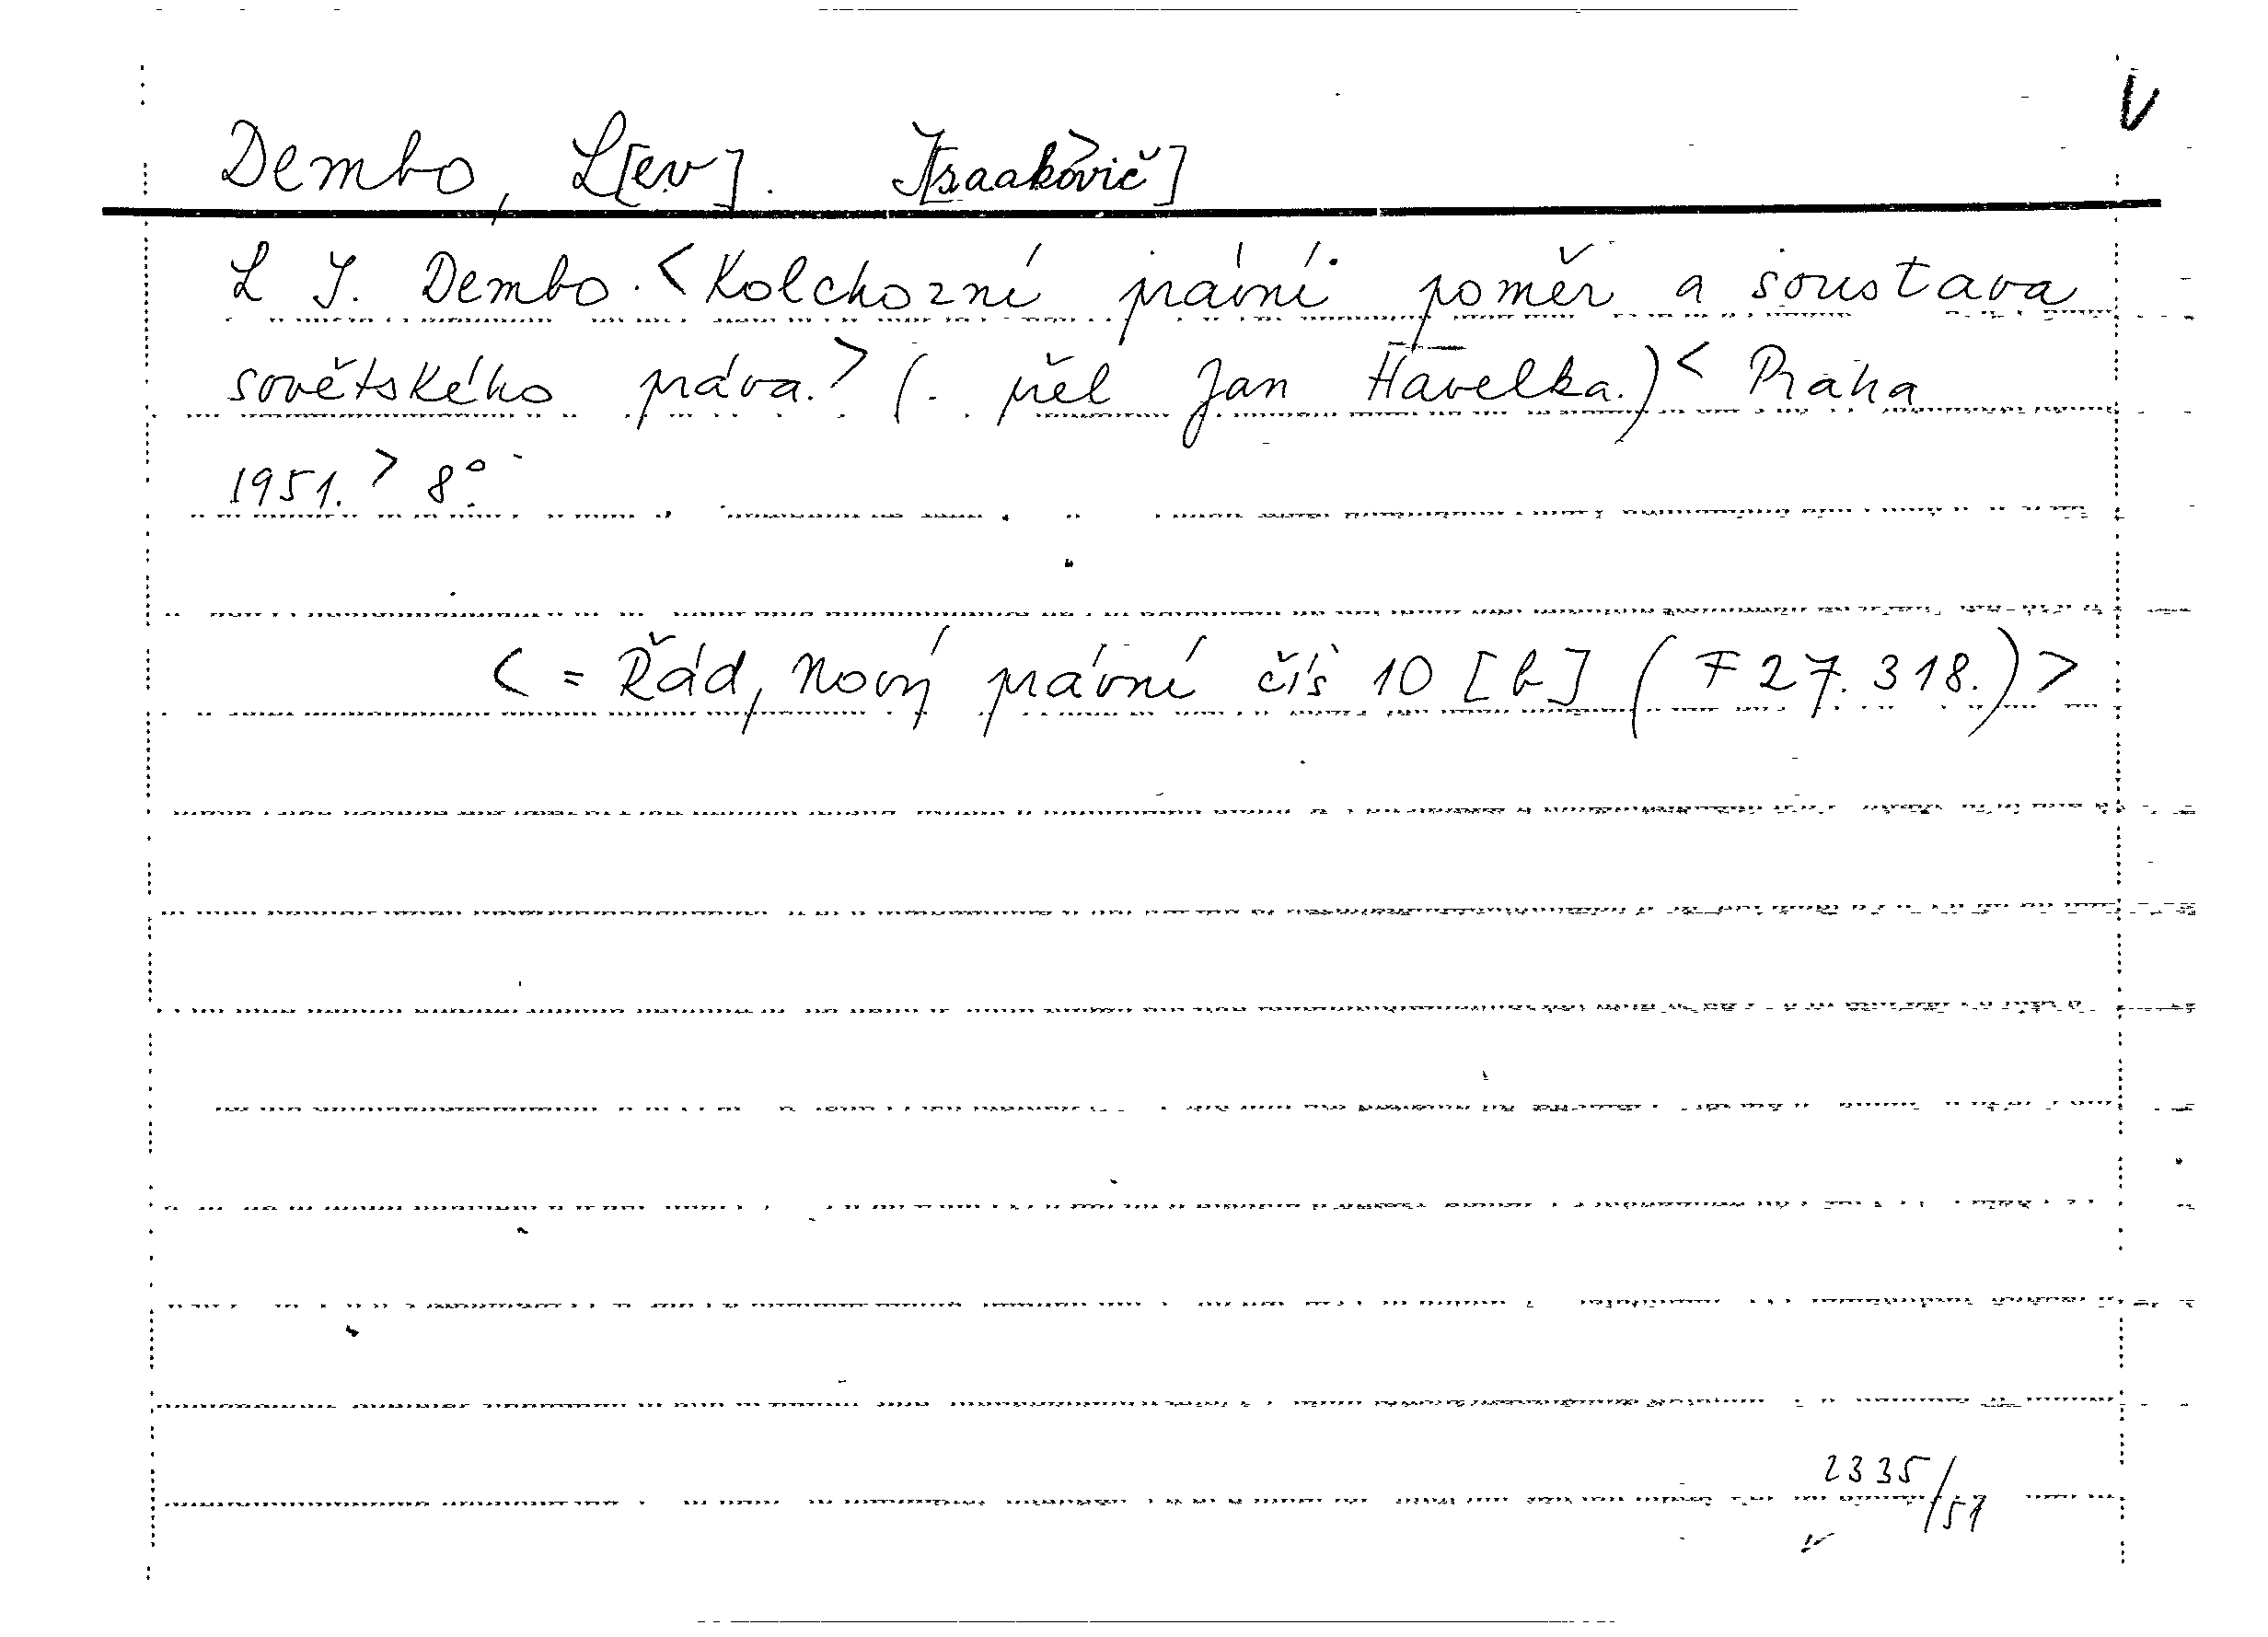 V
Dembo, L[ev]. I[saakovič]
L I. Dembo. <Kolchozní právní poměr a soustava
sovětského práva.> (. přel Jan Havelka.) < Praha
1951.> 8°.
< = Řád, Nový právní čís 10 [b] (F 27.318.) >
2335/51